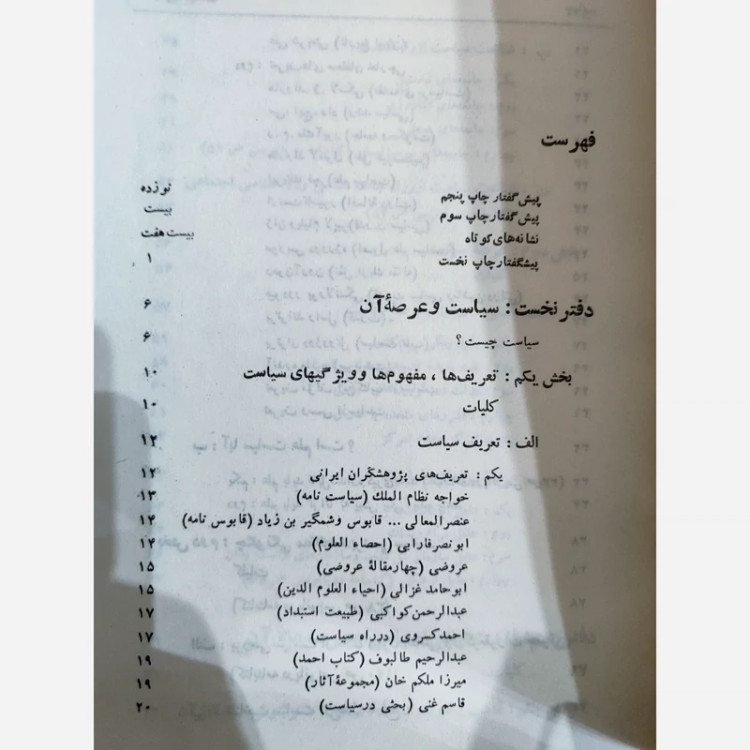 فهرست
پیش گفتار چاپ پنجم نوزده
پیش گفتار چاپ سوم بیست
نشانه‌های کوتاه بیست هفت
پیشگفتار چاپ نخست ۱
دفتر نخست : سیاست و عرصهٔ آن ۶
سیاست چیست ؟ ۶
بخش یکم : تعریف‌ها ، مفهوم‌ها و ویژگیهای سیاست ۱۰
کلیات ۱۰
الف : تعریف سیاست ۱۲
یکم : تعریف‌های پژوهشگران ایرانی ۱۲
خواجه نظام الملک (سیاست نامه) ۱۳
عنصرالمعالی ... قابوس وشمگیر بن زیاد (قابوس نامه) ۱۴
ابونصرفارابی (احصاء العلوم) ۱۴
عروضی (چهارمقالهٔ عروضی) ۱۵
ابوحامد غزالی (احیاء العلوم الدین) ۱۵
عبدالرحمن کواکبی (طبیعت استبداد) ۱۷
احمدکسروی (درراه سیاست) ۱۷
عبدالرحیم طالبوف (کتاب احمد) ۱۹
میرزا ملکم خان (مجموعهٔ آثار) ۱۹
قاسم غنی (بحثی درسیاست) ۲۰